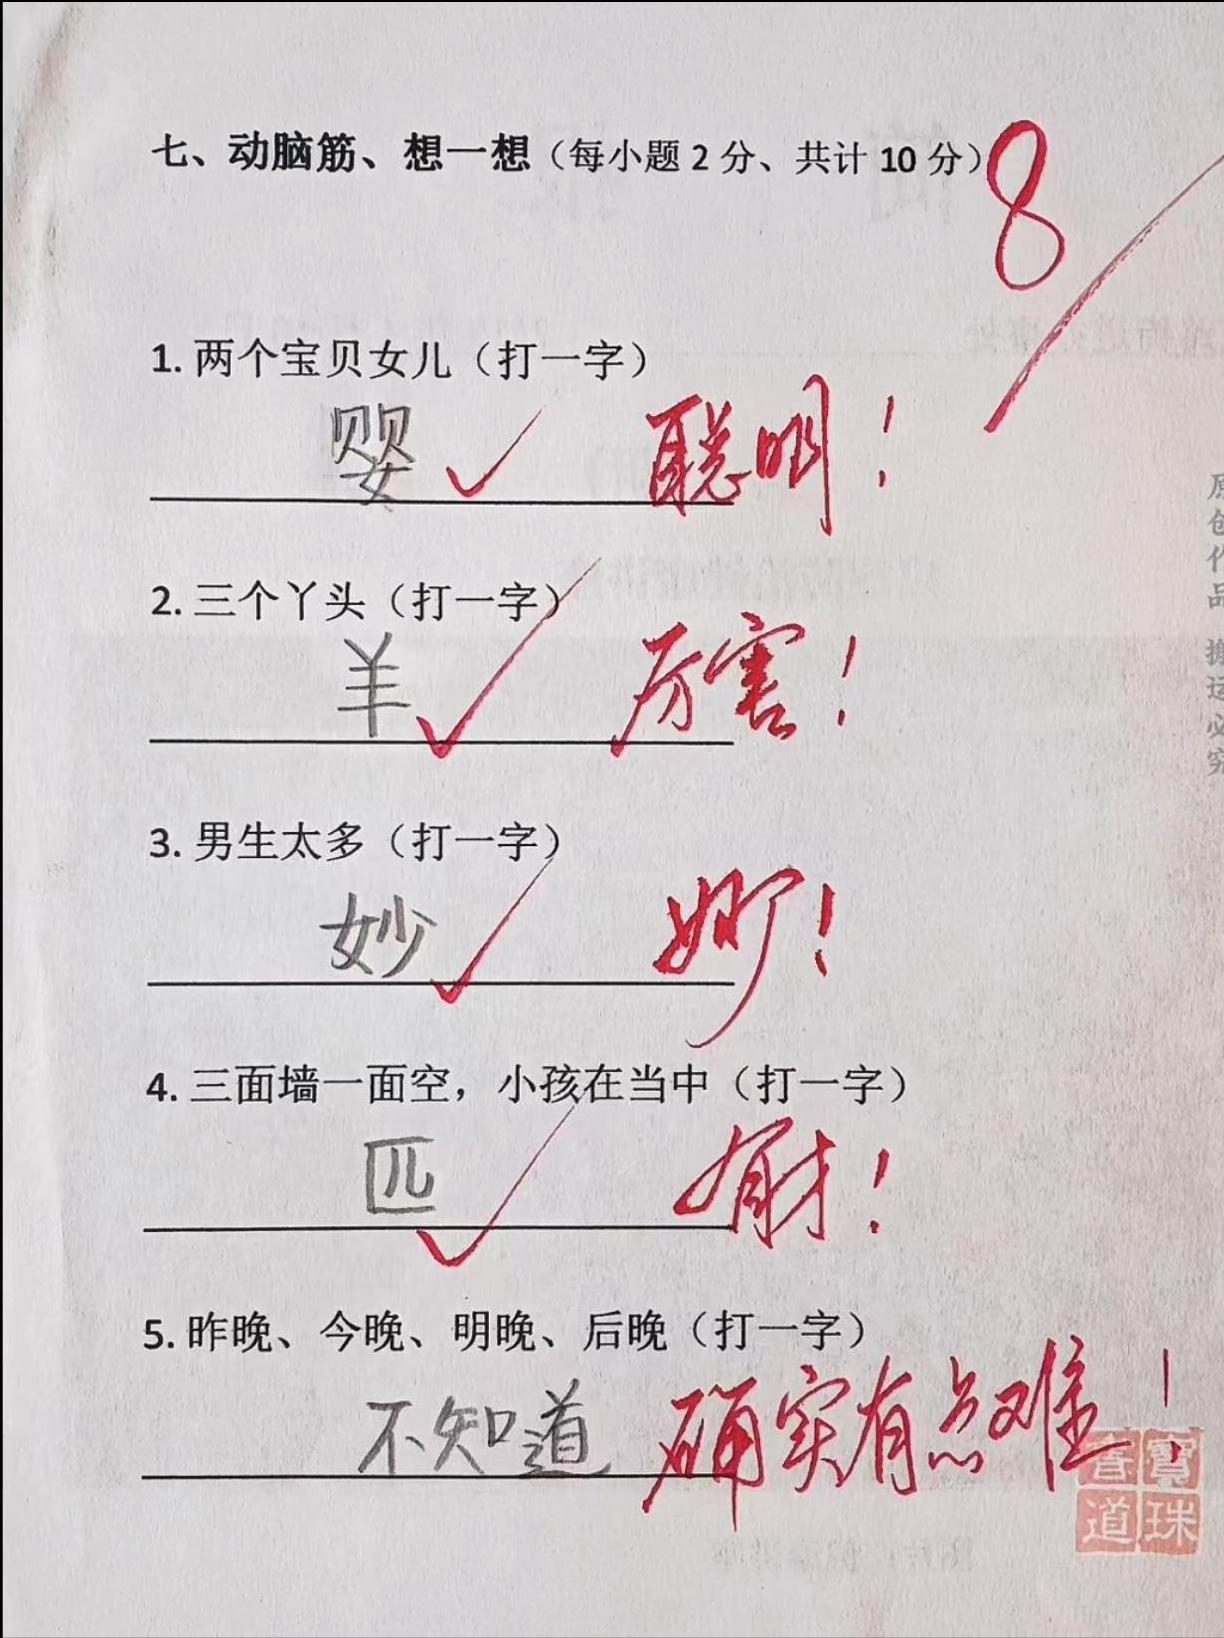 七、动脑筋、想一想（每小题 2 分、共计 10 分）
8
1. 两个宝贝女儿（打一字）
婴 聪明！
2. 三个丫头（打一字）
羊 厉害！
3. 男生太多（打一字）
妙 妙！
4. 三面墙一面空，小孩在当中（打一字）
匹 有才！
5. 昨晚、今晚、明晚、后晚（打一字）
不知道 确实有点难！
原创作品 搬运必究